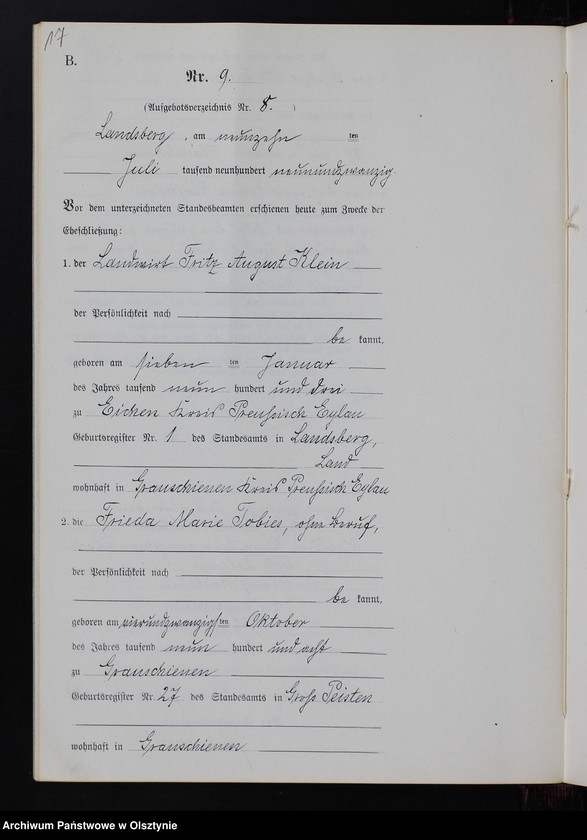 17
B.
Nr. 9.
(Aufgebotsverzeichnis Nr. 8. )
Landsberg, am neunzehn ten
Juli tausend neunhundert neunundzwanzig.
Vor dem unterzeichneten Standesbeamten erschienen heute zum Zwecke der
Eheschließung:
1. der Landwirt Fritz August Klein
der Persönlichkeit nach
be kannt,
geboren am sieben ten Januar
des Jahres tausend neun hundert und drei
zu Eichen Kreis Preußisch Eylau
Geburtsregister Nr. 1 des Standesamts in Landsberg,
Land
wohnhaft in Grauschienen Kreis Preußisch Eylau
2. die Frieda Marie Tobies, ohne Beruf,
der Persönlichkeit nach
be kannt,
geboren am vierundzwanzigsten Oktober
des Jahres tausend neun hundert und acht
zu Grauschienen
Geburtsregister Nr. 27 des Standesamts in Groß Peisten
wohnhaft in Grauschienen
Archiwum Państwowe w Olsztynie